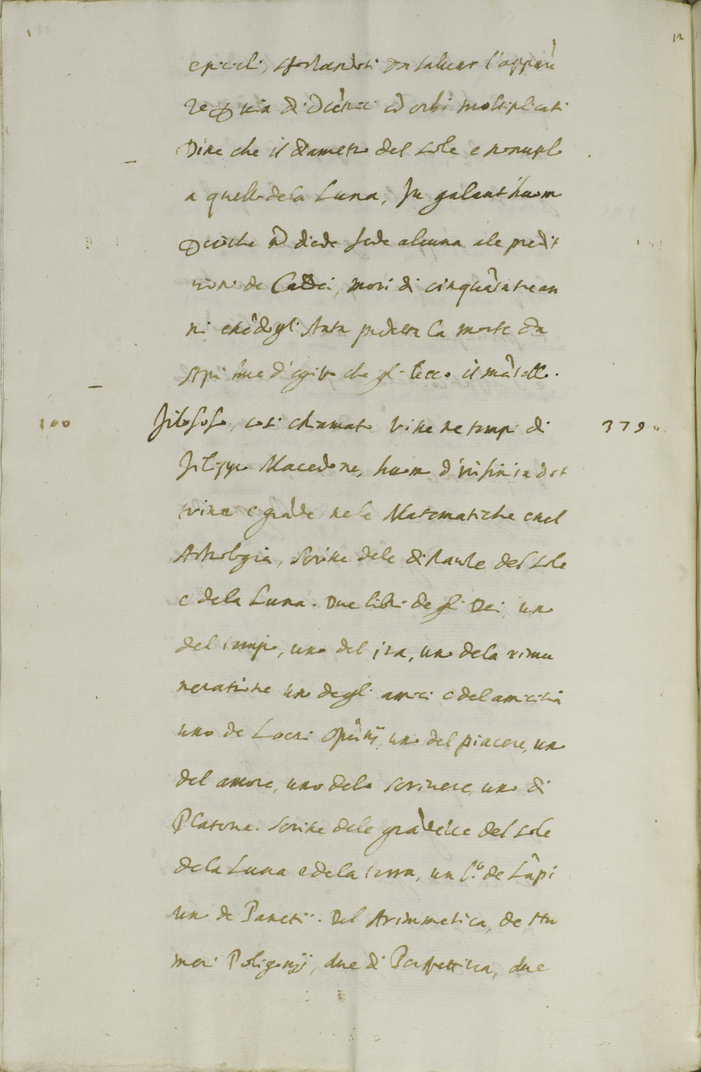 12
epicicli, sforzandosi di salvar l'apparē
ze p via di diversi ed orbi moltiplicati
Disse che il diametro del sole e nonuplo
a quello dela Luna, fu galant'huom
diede fede alcuna ale predit
tioni de Caldei, mori di cinquātatre an
ni, la morte da
d'egitto che gli leccò il mātello.
100 filosofo, cosi chiamato visse ne tempi di 379
filippo Macedone, huom d'infinita dot
trina e grāde nele Matematiche e nel
Astrologia, scrisse dele distanze del sole
e dela Luna. Due libri degli Dei, un
del tempo, uno del ira, uno dela rimu
neratione un degli amici e del amicitia
uno de Locri Opūtij, uno del piacere, un
del amore, uno delo scrivere, un di
Platone. Scrisse dele grādezze del sole
dela Luna e dela terra, un l.º de Lāpi
un de Paneti. Del Arimmetica, de Nu
meri Poligonij, due di Perspettiva, due